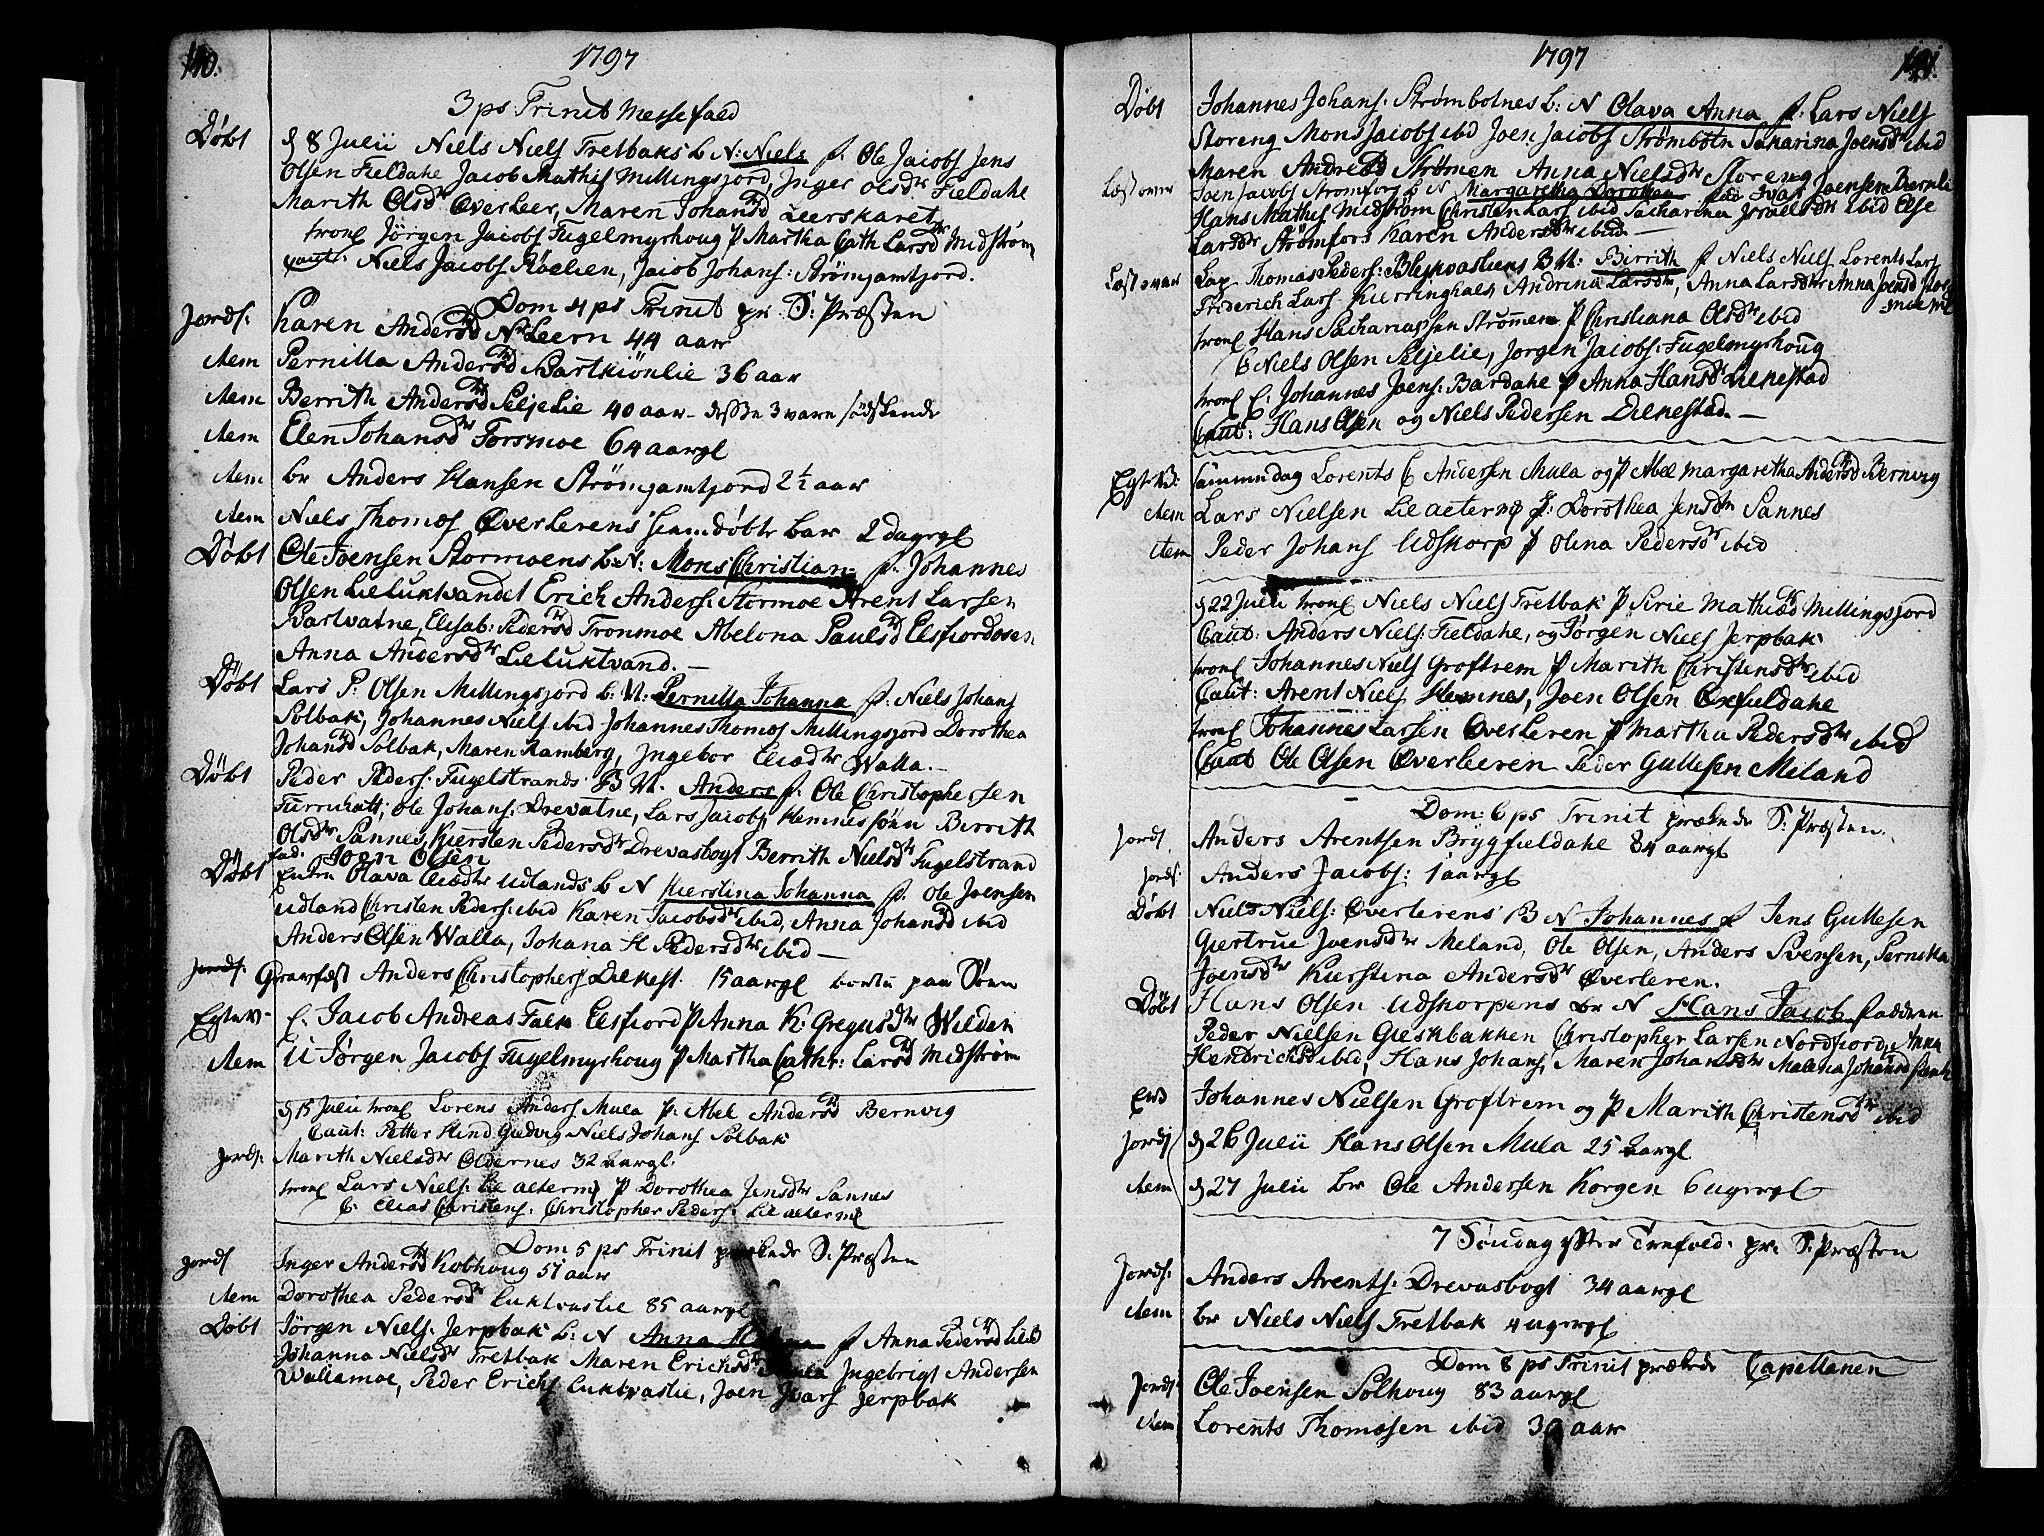 140.
1797
3 ps: Trinit Messefald
Døbt d 8 Julii Niels Niels Tretbaks b N: Niels f. Ole Jacobs Jens
Olsen Fieldahl Jacob Mathis Millingsjord Inger Olsdr Fieldahl
Marith Olsdr Øverleer, Maren Johansdr Leerskaret
trol Jörgen Jacobs Fugelmyrhoug P Martha Cath Larsdr Midström
Caut: Niels Jacobs Röelien, Jacob Johans: Strömjamtjord.
Dom 4 ps Trinit pr: S: Præsten
Jords: Karen Andersdr N Leern 44 aar
Item Pernilla Andersdr Bartkiönlie 36 aar
Item Berrith Andersdr Seljelie 40 aar - disse 3 vare södskende
Item Elen Johansdr Forsmoe 64 aargl
Item br Anders Hansen Strömjamtjord 2½ aar
Item Niels Thomes Øverlerens hiemdøbte bar 2 dagrgl
Døbt Ole Joensen Stormoens b: N: Mons Christian f. Johannes
Olsen Lieluktvandet Erich Anders: Stormoe Arent Larsen
Bartvatne, Elisab: Pedersdr Tronmoe Abelona Paulsdr Elsfiordosen
Anna Andersdr Lieluktvand. —
Døbt Lars P: Olsen Millingsjord b: N: Pernilla Johanna f: Niels Johans
Solbak, Johannes Niels ibid Johannes Thomes Millingsjord Dorothea
Johansdr Solbak, Maren Ramberg, Ingebor Eliædr Walla. —
Døbt Peder Peders: Fugelstrands B N. Anders f. Ole Christophersen
Furruhatt, Ole Johans: Drevatne, Lars Jacobs, Hemnes sönn Berrith
Olsdr Sannes, Kiersten Pedersdr Drevasbogt Berrith Nielsdr Fugelstrand
fad. Joen Olsen
Døbt Enken Olava Eliædr Udlands b N Kierstina Johanna f. Ole Joensen
Udland Christen Peders: ibid Karen Jacobsdr ibid, Anna Johansdr ibid
Anders Olsen Walla, Johana H Pedersdr ibid —
Jords: Gravfæst Anders Christophers Lienest. 15 aargl bortu paa Söen
Egtev- E. Jacob Andreas Falk Elsfiord P Anna K. Gregusdr Wilden
Item U Jörgen Jacobs Fugelmyrhoug P Martha Cathr: Larsdr Midström
d 15 Julii trol Lorens Anders Mula P. Abel Andersdr Bernvig
Caut: Petter Hind Gudvig Niels Johans Solbak
Jords: Marith Nielsdr Oldernes 32 aargl.
trol Lars Niels: Lie P Dorothea Jensdr Sannes
C. Elias Christens: Christopher Peders:
Dom 5 ps Trinit prækede S: Præsten
Jords Inger Andersdr Kobhoug 51 aar
Item Dorothea Pedersdr Luktvaslie 85 aargl
Døbt Jörgen Niels: Jerpbak b: N Anna f Anna Pedersdr
Johanna Nielsdr Tretbak Maren Erichsdr Ingebrigt Andersen
Waliamoe, Peder Erichs Luktvaslie, Joen Ivars Jerpbak
1797
141.
Døbt Johannes Johans: Strømbotnes b: N Olava Anna f. Lars Niels
Storeng Mons Jacobs ibd Joen Jacobs Strømbotn Sakarina Joensdr ibid
Maren Andreædr Strömen Anna Nielsdr Storeng
Læst over Joen Jacobs Strömfors b N Margaretha Dorothea fad Ivar Joensen
Hans Mathis Midström Christen Lars ibid Sacharina Israelsdr ibid Else
Larsdr Strömfors Karen Andersdr ibid —
Læst over Lap Thomas Peders: B N. Birrith f Niels Niels Lorents Lars
Friderich Lars Kierringhals, Andrina Larsdr, Anna Larsdr Anna Joensd
trol Hans Sachariassen Strømen P Christiana Olsdr ibid
C Niels Olsen Seljelie, Jorgen Jacobs: Fugelmyrhoug
trol E. Johannes Joens: Bardahl P Anna Hansdr Lienestad
Caut: Hans Olsen og Niels Pedersen Lienestad —
Egt: V: samme dag Lorents C Andersen Mula og P Abel Margaretha Andersdr Bernvig
Item Lars Nielsen Lie P: Dorothea Jensdr Sannes
Item Peder Johans Udskorp P Olina Pedersdr ibid
d 22 Julii trol Niels Niels Tretbak P Sirie Mathiædr Millingsjord
Caut: Anders Niels: Fieldahl, og Jörgen Niels Jerpbak
trol Johannes Niels Groftrem P Marith Christensdr ibid
Caut: Arent Niels Hemnes, Joen Olsen Oxfieldahl
trol Johannes Larsen Øverleren P Martha Pedersdr ibid
Caut Ole Olsen Øverleeren Peder Gullesen Meland
Dom: 6 ps Trinit prækede S: Præsten.
Jords Anders Arentsen Brygfieldahl 84 aargl
Jords: Anders Jacobs: 1 aargl
Døbt Niels Niels: Øverlerens B N Johannes f Jens Gullesen
Giertrue Joensdr Meland, Ole Olsen, Anders Svensen, Pernilla
Joensdr Kierstina Andersdr Øverleren.
Døbt Hans Olsen Udskorpens br N Hans Jacob Faddere
Peder Nielsen Gieskbakken Christopher Larsen Nordfiord, Anna
Hendrichsd ibid, Hans Johans, Maren Johansdr Malena Johansd
EV3 Johannes Nielsen Groftrem og P Marith Christensdr ibid
Jords d 26 Julii Hans Olsen Mula 25 aargl
Item d 27 Julii br Ole Andersen Korgen 6 ugergl
7 Söndag efter Trefold: pr: S: Præsten
Jords: Anders Arents: Drevasbogt 34 aargl
Item br Niels Niels Tretbak 4 ugergl
Dom 8 ps Trinit prækede Capellanen
Jords: Ole Joensen Solhoug 83 aargl
Item Lorents Thomesen ibid 30 aar